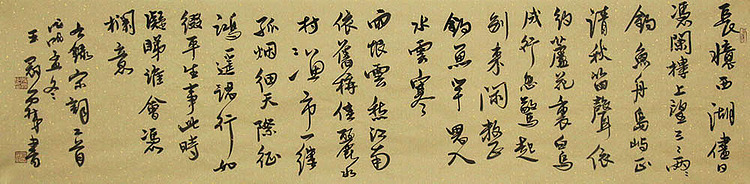 長憶西湖儘日
憑闌樓上望三々兩々
釣魚舟島嶼正
清秋笛聲依
約蘆花裏白鳥
成行忽驚起
別來閑整
釣魚竿思入
水雲寒
雨恨雲愁江南
依舊稱佳麗水
村漁市一縷
孤烟細天際征
鴻遙認行如
綴平生事此時
凝睇誰會憑
欄意
錄宋詞二首
孟冬
王 書